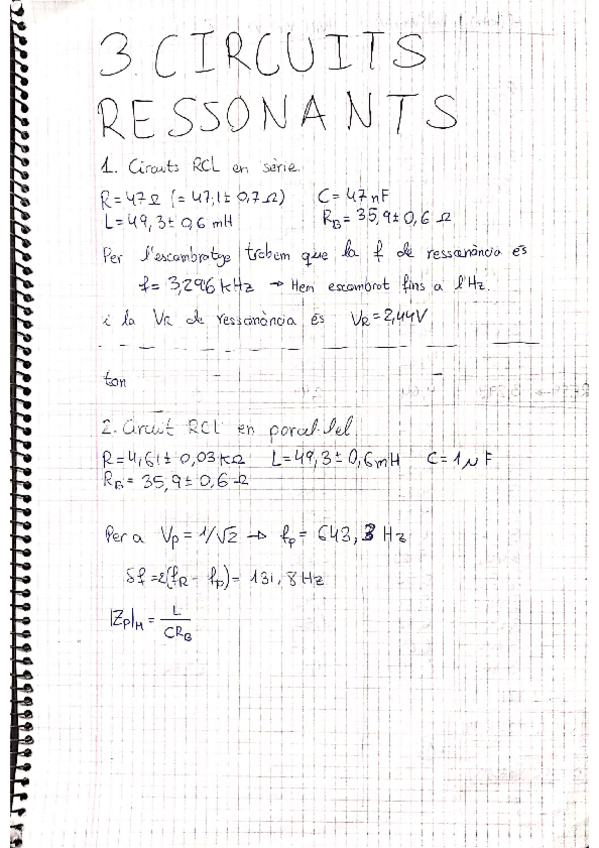 3. CIRCUITS
RESSONANTS
1. Circuits RCL en sèrie.
R = 47 Ω (= 47,1 ± 0,7 Ω) C = 47 nF
L = 49,3 ± 0,6 mH R_B = 35,9 ± 0,6 Ω
Per l'escombratge trobem que la f de ressonància és
f = 3,296 kHz → Hem escombrat fins a l'Hz.
i la V_R de ressonància és V_R = 2,44V
ton
2. Circuit RCL en paral·lel
R = 4,61 ± 0,03 KΩ L = 49,3 ± 0,6 mH C = 1 μF
R_B = 35,9 ± 0,6 Ω
Per a V_p = 1/√2 → f_p = 643,3 Hz
δf = 2(f_R - f_p) = 131,8 Hz
|Z_p|_M = L / CR_B